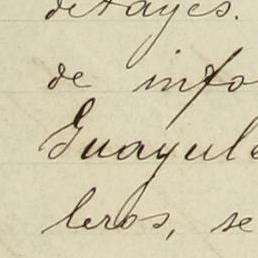 detayes.
de info
Guayule
leros, se